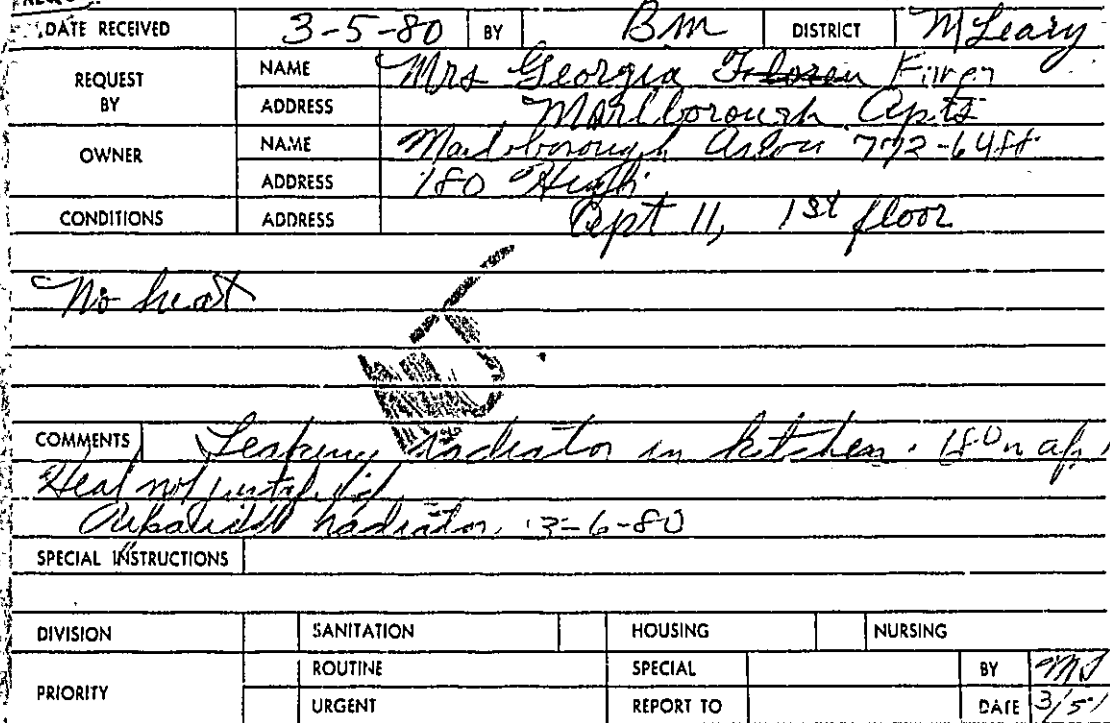 DATE RECEIVED 3-5-80 BY BM DISTRICT McLeary
REQUEST BY NAME Mrs Georgia
ADDRESS Marlborough Apts
OWNER NAME Marlborough 772-6488
ADDRESS 180 High
CONDITIONS ADDRESS Apt 11, 1st floor
No heat
COMMENTS Leaking radiator in kitchen.
Heat not justified
radiator, 3-6-80
SPECIAL INSTRUCTIONS
DIVISION SANITATION HOUSING NURSING
PRIORITY ROUTINE SPECIAL BY
URGENT REPORT TO DATE 3/5/